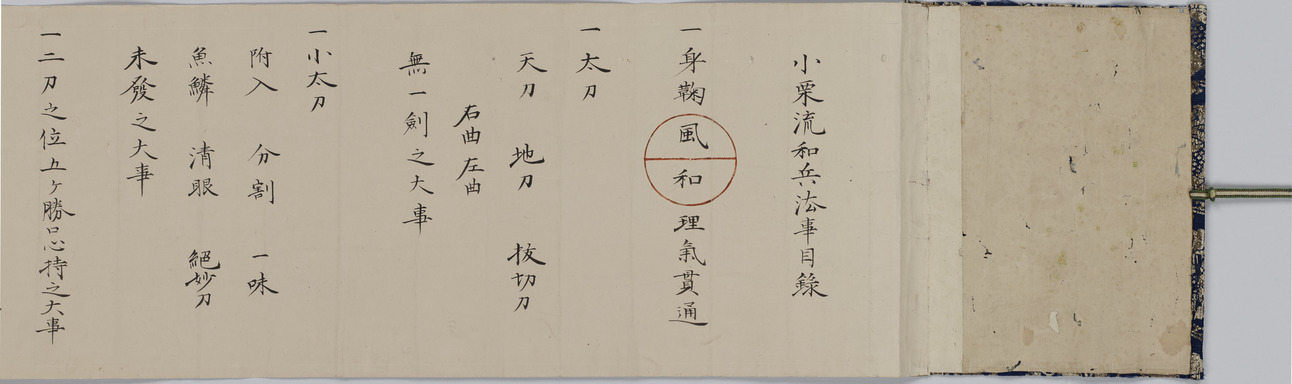 小栗流和兵法事目錄
一身鞠 風和 理氣貫通
一太刀
天刀 地刀 抜切刀
右曲左曲
無一劍之大事
一小太刀
附入 分割 一味
魚鱗 清眼 絕妙刀
未發之大事
一二刀之位五ヶ勝口心持之大事